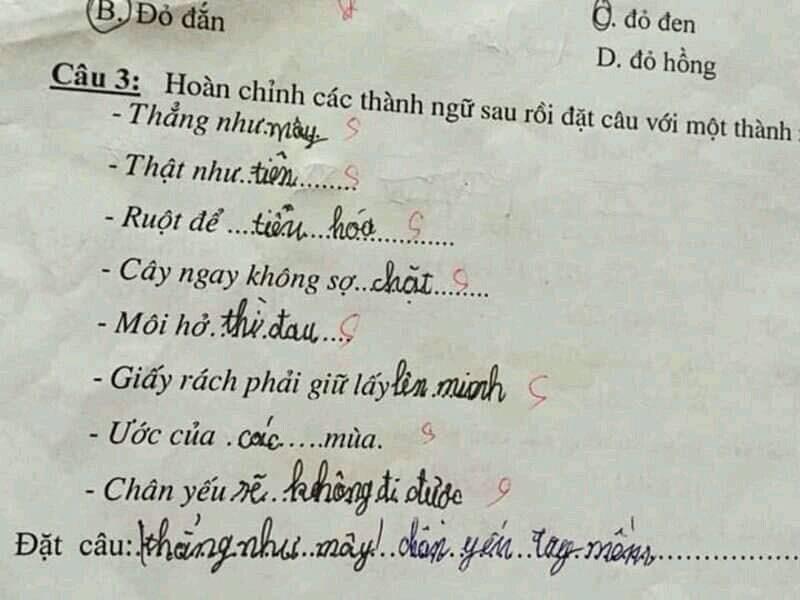 B. Đỏ đắn
C. đỏ đen
D. đỏ hồng
Câu 3: Hoàn chỉnh các thành ngữ sau rồi đặt câu với một thành
- Thẳng như.mày
- Thật như..tiền........
- Ruột để ....tiêu...hóa............
- Cây ngay không sợ..chặt........
- Môi hở.thì.đau....
- Giấy rách phải giữ lấy lên.minh
- Ước của .các....mùa.
- Chân yếu sẽ..không đi được
Đặt câu:thẳng.như..mây!..chân.yếu..tay.mềm................